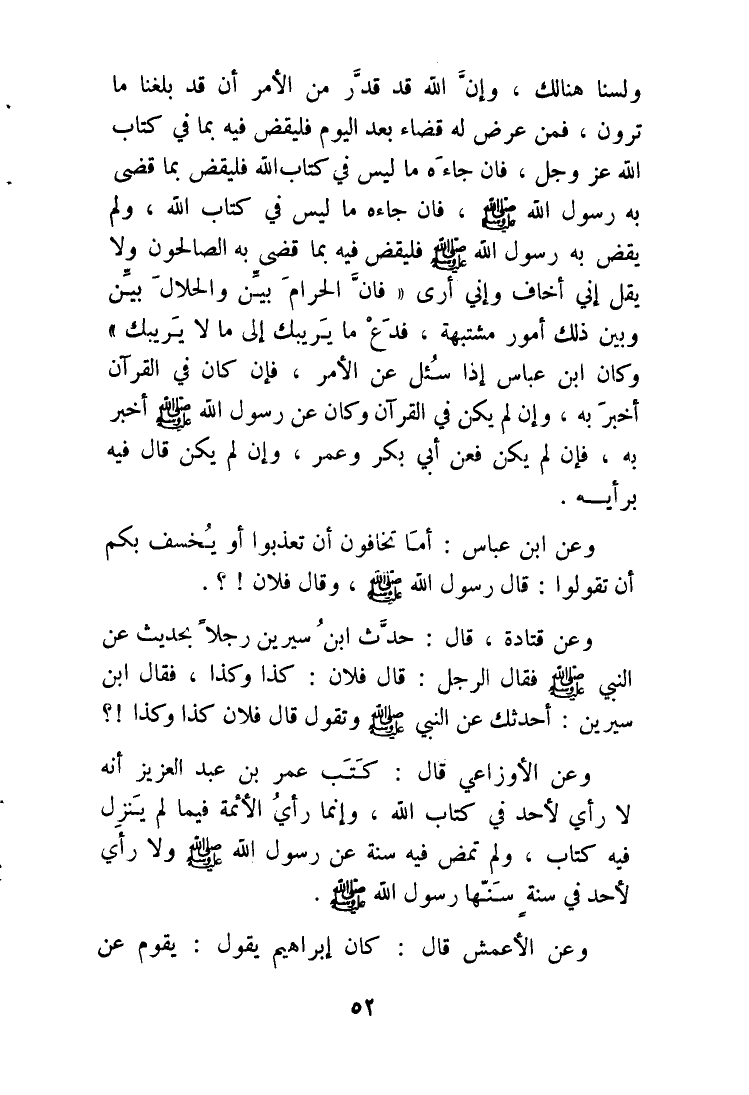 ولسنا هنالك ، وإنَّ الله قد قدَّر من الأمر أن قد بلغنا ما
ترون ، فمن عرض له قضاء بعد اليوم فليقض فيه بما في كتاب
الله عز وجل ، فان جاءَه ما ليس في كتاب الله فليقض بما قضى
به رسول الله ﷺ ، فان جاءه ما ليس في كتاب الله ، ولم
يقض به رسول الله ﷺ فليقض فيه بما قضى به الصالحون ولا
يقل إني أخاف وإني أرى « فانَّ الحرامَ بيِّن والحلالَ بيِّن
وبين ذلك أمور مشتبهة ، فدَعْ ما يَريبك إلى ما لا يَريبك »
وكان ابن عباس إذا سُئل عن الأمر ، فإن كان في القرآن
أخبرَ به ، وإن لم يكن في القرآن وكان عن رسول الله ﷺ أخبر
به ، فإن لم يكن فعن أبي بكر وعمر ، وإن لم يكن قال فيه
برأيه .
وعن ابن عباس : أمَا تخافون أن تعذبوا أو يُخسف بكم
أن تقولوا : قال رسول الله ﷺ ، وقال فلان ! ؟ .
وعن قتادة ، قال : حدَّث ابنُ سيرين رجلاً بحديث عن
النبي ﷺ فقال الرجل : قال فلان : كذا وكذا ، فقال ابن
سيرين : أحدثك عن النبي ﷺ وتقول قال فلان كذا وكذا !؟
وعن الأوزاعي قال : كَتَب عمر بن عبد العزيز أنه
لا رأي لأحد في كتاب الله ، وإنما رأيُ الأئمة فيما لم يَنزِل
فيه كتاب ، ولم تمض فيه سنة عن رسول الله ﷺ ولا رأي
لأحد في سنةٍ سَنّها رسول الله ﷺ .
وعن الأعمش قال : كان إبراهيم يقول : يقوم عن
٥٢